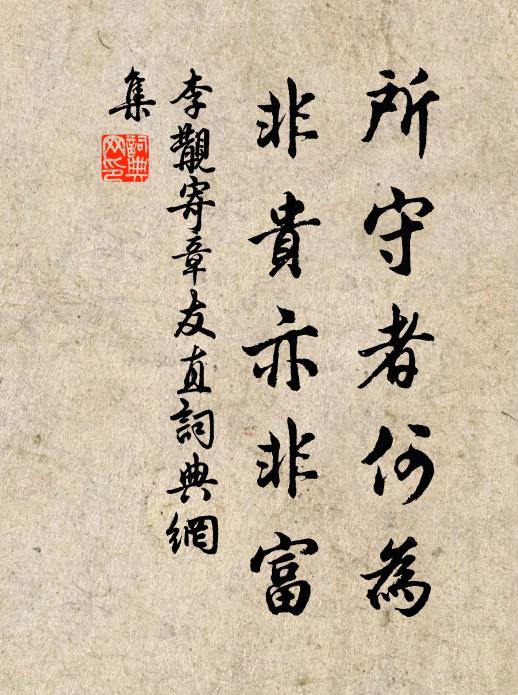 所守者何為
非貴亦非富
李覯寄章友直詞典網
集
詞典
网印